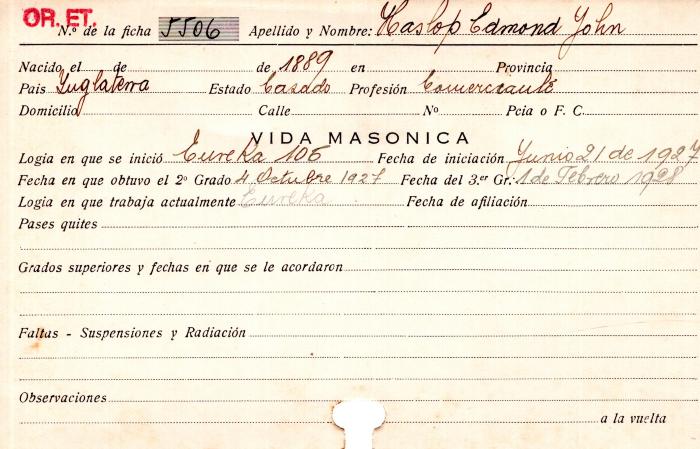 OR. ET.
N.º de la ficha 5506 Apellido y Nombre: Haslop Edmond John
Nacido el de de 1889 en Provincia
Pais Inglaterra Estado Casado Profesión Comerciante
Domicilio Calle Nº Pcia o F. C.
VIDA MASONICA
Logia en que se inició Eureka 105 Fecha de iniciación Junio 21 de 1927
Fecha en que obtuvo el 2º Grado 4 Octubre 1927 Fecha del 3.er Gr. 1 de Febrero 1928
Logia en que trabaja actualmente Eureka Fecha de afiliación
Pases quites
Grados superiores y fechas en que se le acordaron
Faltas - Suspensiones y Radiación
Observaciones
a la vuelta